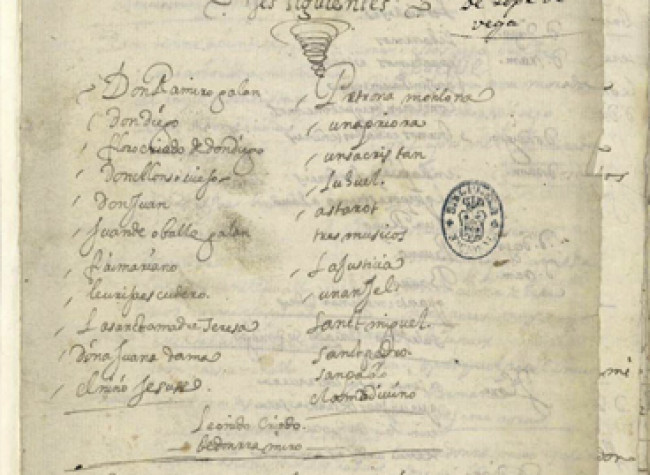 jes siguientes
de lope de
vega
Don Ramiro galan
Don diego
floro criado de don diego
Don Alonso viejo
Don Juan
Juan de oballe galan
fai mariano
leuri
escudero.
La sancta madre Teresa
Doña Juana dama
el niño Jesus
Petrona
una priora
un sacristan
Luzuel.
astarot
tres musicos
La Justicia
un angel
Sanct miguel.
san pedro.
san pablo
el amor divino